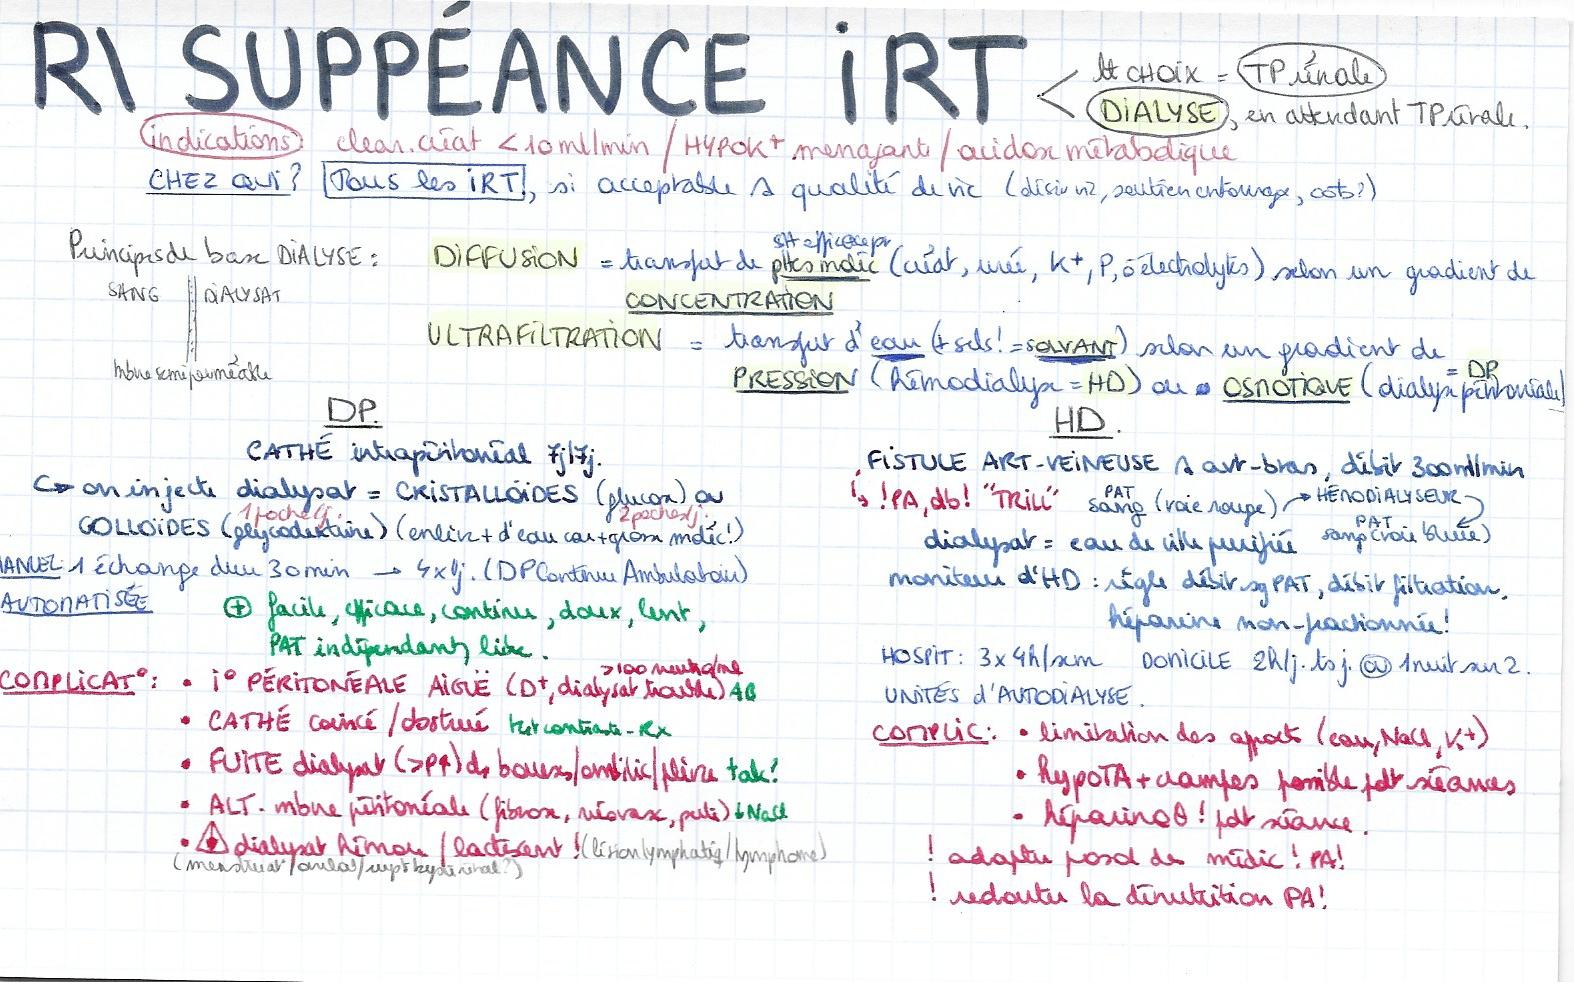 R\ SUPPÉANCE iRT
ttt CHOIX = TP rénale
DiALYSE, en attendant TP rénale.
indications clear. créat < 10 ml/min / HYPOK+ menaçant / acidose métabolique
CHEZ QUI ? Tous les iRT, si acceptable qualité de vie (désir vie, soutien entourage, cstb?)
Principes de base DiALYSE :
SANG DiALYSAT
mbne semi perméable
DiFFUSiON = transfert de ptes moléc (créat, urée, K+, P, ō électrolytes) selon un gradient de
CONCENTRATiON
ULTRAFiLTRATiON = transfert d'eau (+ sels! = SOLVANT) selon un gradient de
PRESSiON (hémodialyse = HD) ou OSMOTiQUE (dialyse péritonéale) = DP
DP.
CATHÉ intrapéritonéal 7j/7j.
on injecte dialysat = CRiSTALLOÏDES (glucose) ou
1 poche/j. 2 poches/j.
COLLOÏDES (glycodextrine) (enlève + d'eau car + grosse moléc!)
MANUEL: 1 échange dure 30 min → 4x/j. (DP Continue Ambulatoire)
AUTOMATiSÉE
⊕ facile, efficace, continu, doux, lent,
PAT indépendant, libre.
COMPLiCAT°: • i° PÉRiTONÉALE AiGUË (D+, dialysat trouble) AB
>100 neutro/mL
• CATHÉ coincé / obstrué Rx
• FUiTE dialysat (>P↑) ds bourses/ombilic/plèvre
• ALT. mbne péritonéale (fibrose, néovasc, perte) ↓ NaCl
• dialysat hémorr / lactescent ! (lésion lymphatiq / lymphome)
(menstruat / ovulat /
HD.
FiSTULE ART-VEiNEUSE avt-bras, débit 300ml/min
! PA, db! "TRiLL" sang PAT (voie rouge) → HÉMODiALYSEUR
sang PAT (voie bleue)
dialysat = eau de ville purifiée
moniteur d'HD : règle débit sg PAT, débit filtration,
héparine non-fractionnée!
HOSPiT : 3x4h/sem DOMiCiLE 2h/j. ts j. 1 nuit sur 2.
UNiTÉS d'AUTODiALYSE.
COMPLiC : • limitation des apports (eau, NaCl, K+)
• hypoTA + crampes possible pdt séances
• héparinoθ ! pdt séance.
! adapter posol de médic ! PA!
! redouter la dénutrition PA!